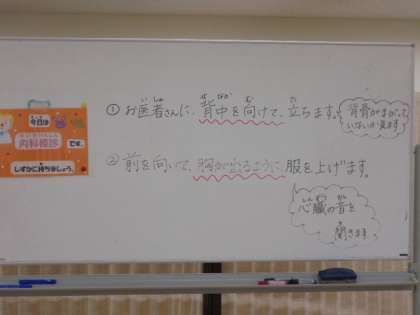 ① お医者さんに、背中を向けて、立ちます。
背骨がまがって
いないか見ます
今日は
内科検診
です。
しずかに待ちましょう。
② 前を向いて、胸が出るように服を上げます。
心臓の音を
聞きます。